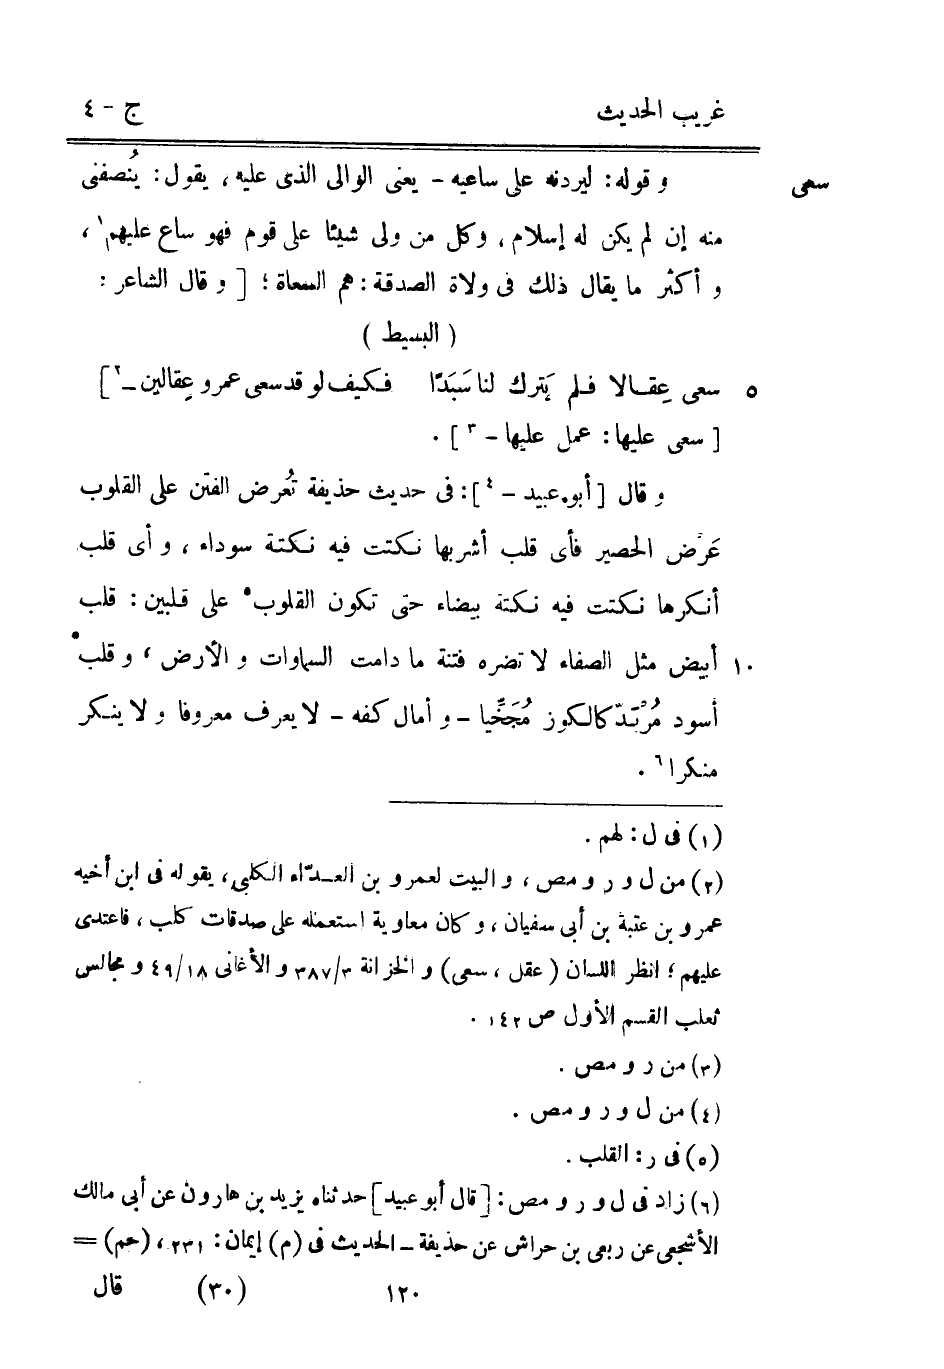 غريب الحديث ج - ٤
سعى و قوله: ليردنه على ساعيه - يعنى الوالى الذى عليه، يقول: يُنصفنى
منه إن لم يكن له إسلام، وكل من ولى شيئا على قوم فهو ساع عليهم١،
و أكثر ما يقال ذلك فى ولاة الصدقة: هم السعاة؛ [ و قال الشاعر:
( البسيط )
٥ سعى عِقالا فلم يَترك لنا سَبَدًا فكيف لو قد سعى عمرو عِقالين -٢]
[ سعى عليها: عمل عليها -٣ ] .
و قال [ أبو عبيد -٤ ]: فى حديث حذيفة تُعرض الفتن على القلوب
عَرْض الحصير فأى قلب أشربها نكتت فيه نكتة سوداء، و أى قلب
أنكرها نكتت فيه نكتة بيضاء حتى تكون القلوب٥ على قلبين: قلب
١٠ أبيض مثل الصفاء لا تضره فتنة ما دامت السماوات و الأرض، و قلب٥
أسود مُرْبَدّ كالكوز مُجَخِّيا - و أمال كفه - لا يعرف معروفا و لا ينكر
منكرا٦ .
(١) فى ل: لهم .
(٢) من ل و ر و مص، و البيت لعمرو بن العدّاء الكلبى، يقوله فى ابن أخيه
عمرو بن عتبة بن أبى سفيان، وكان معاوية استعمله على صدقات كلب، فاعتدى
عليهم؛ انظر اللسان ( عقل، سعى) و الخزانة ٣/ ٣٨٧ و الأغانى ١٨/ ٤٩ و مجالس
ثعلب القسم الأول ص ١٤٢ .
(٣) من ر و مص .
(٤) من ل و ر و مص .
(٥) فى ر: القلب .
(٦) زاد فى ل و ر و مص: [قال أبو عبيد] حدثناه يزيد بن هارون عن أبى مالك
الأشجعى عن ربعى بن حراش عن حذيفة - الحديث فى (م) إيمان: ٢٣١، (حم) =
١٢٠ (٣٠) قال